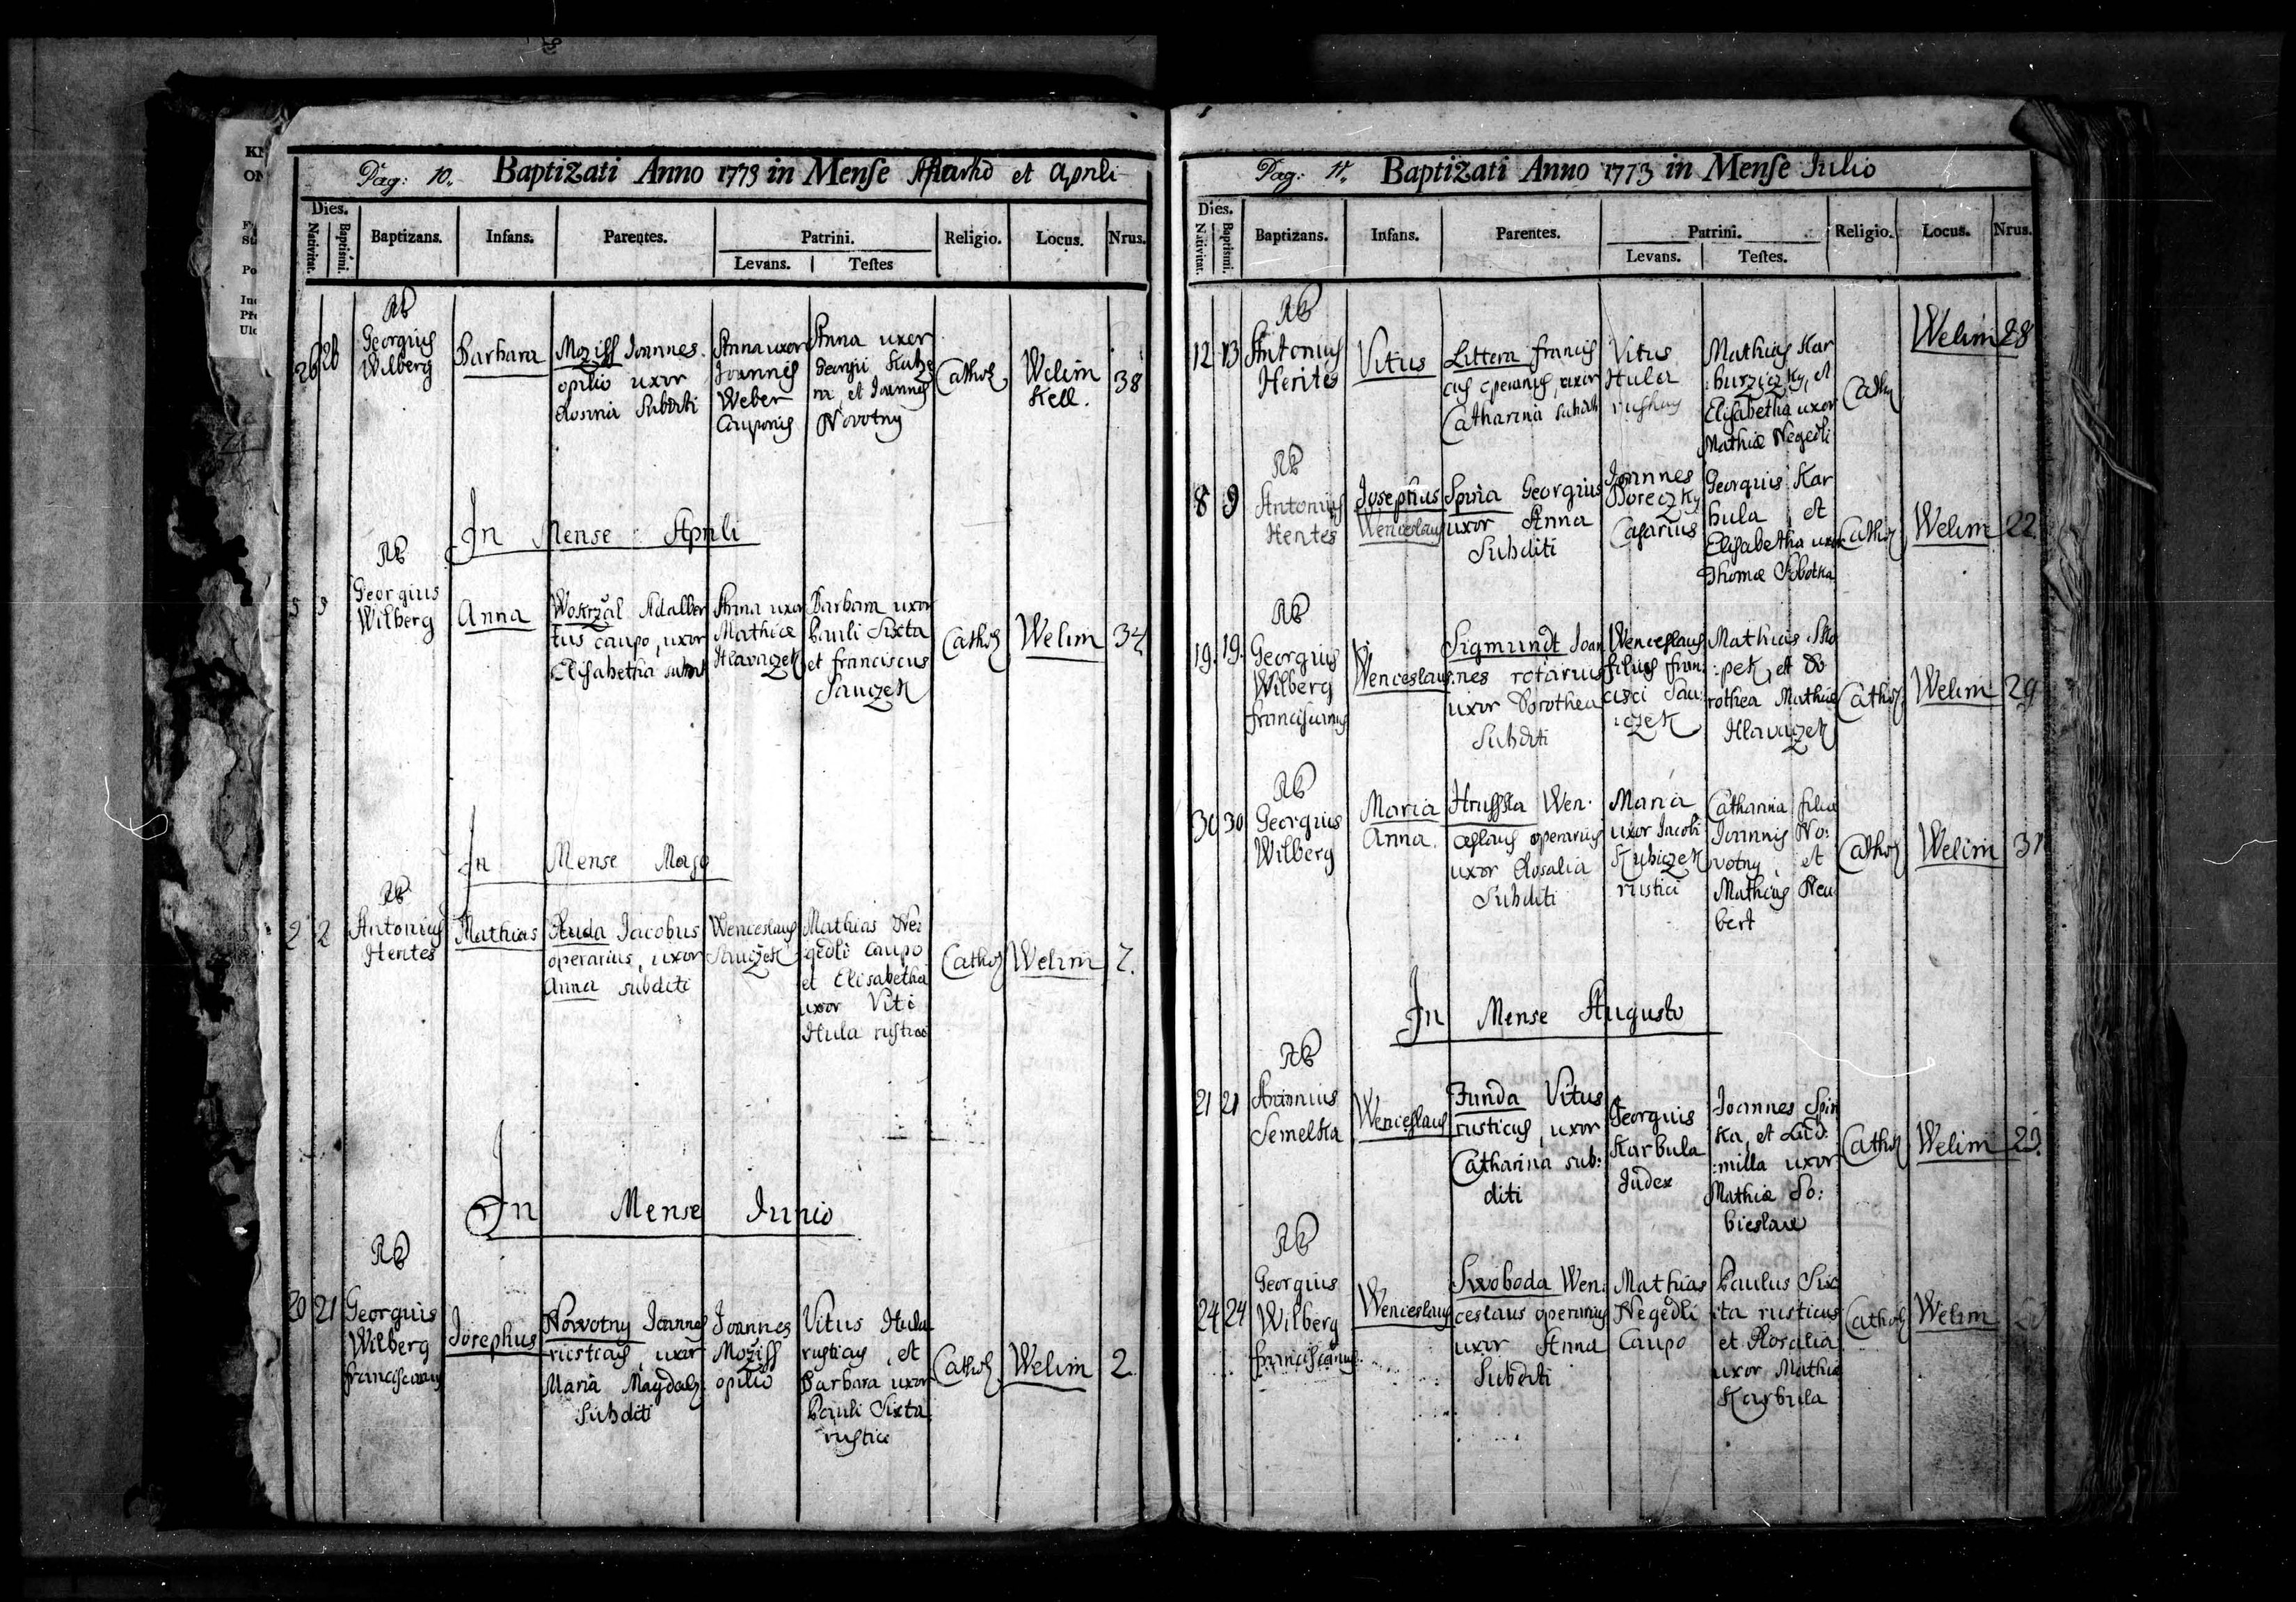 Pag: 10. Baptizati Anno 1773 in Mense Martio et Aprili
Dies.
Nativitat.
Baptismi.
Baptizans.
Infans.
Parentes.
Patrini.
Levans.
Testes
Religio.
Locus.
Nrus.
26 26
Georgius
Wilberg
Barbara
Moziss Joannes
opilio uxor
Rosina Subditi
Anna uxor
Joannis
Weber
Cauponis
Anna uxor
Georgii
et Joannes
Novotny
Cathol
Welim
Kell.
38
In Mense Aprili
Georgius
Wilberg
Anna
Wokrzal Adalber
tus Caupo, uxor
Elisabetha subdit
Anna uxor
Mathiæ
Hlavaczek
Barbara uxor
Pauli Sixta
et franciscus
Sauczek
Cathol
Welim
34
In Mense Majo
2 2
Antonius
Herites
Mathias
Ruda Jacobus
operarius, uxor
Anna subditi
Wenceslaus
Sauczek
Mathias Ne:
gedli caupo
et Elisabetha
uxor Viti
Hula rustici
Cathol
Welim
7.
In Mense Junio
20 21
Georgius
Wilberg
franciscanus
Josephus
Nowotny Joannes
rusticus, uxor
Maria Magdal:
Subditi
Joannes
Moziss
opilio
Vitus Hula
rusticus, et
Barbara uxor
Pauli Sixta
rustici
Cathol
Welim
2
Pag: 11. Baptizati Anno 1773 in Mense Julio
Dies.
Nativitat.
Baptismi.
Baptizans.
Infans.
Parentes.
Patrini.
Levans.
Testes.
Religio.
Locus.
Nrus.
12 13
Antonius
Herites
Vitus
Littera francis
cus operarius, uxor
Catharina subditi
Vitus
Hula
rusticus
Mathias Kar
:burziczky, et
Elisabetha uxor
Mathiæ Negedli
Cathol
Welim 28
8 9
Antonius
Herites
Josephus
Wenceslaus
Spina Georgius
uxor Anna
Subditi
Joannes
Boreczky
Casarius
Georgius Kar
bula, et
Elisabetha uxor
Thomæ Sobotka
Cathol
Welim
22.
19. 19.
Georgius
Wilberg
franciscanus
Wenceslaus
Sigmundt Joan
:nes rotarius
uxor Dorothea
Subditi
Wenceslaus
filius fran:
cisci Sau:
:czek
Mathias Sko
:pek, et Do
rothea Mathiæ
Hlavaczek
Cathol
Welim
29
30 30
Georgius
Wilberg
Maria
Anna.
Hrusska Wen:
ceslaus operarius
uxor Rosalia
Subditi
Maria
uxor Jacobi
Kubiczek
rustici
Catharina filia
Joannis No:
votny, et
Mathias Neu
bert
Cathol
Welim
31
In Mense Augusto
21 21
Antonius
Semelka
Wenceslaus
Funda Vitus
rusticus, uxor
Catharina sub:
diti
Georgius
Karbula
Judex
Joannes Spin
ka, et Lud:
:milla uxor
Mathiæ So:
bieslaw
Cathol
Welim
23.
24 24
Georgius
Wilberg
franciscanus
Wenceslaus
Swoboda Wen:
ceslaus operarius
uxor Anna
Subditi
Mathias
Negedli
Caupo
Paulus Six
:ta rusticus
et Rosalia
uxor Mathiæ
Karbula
Cathol
Welim